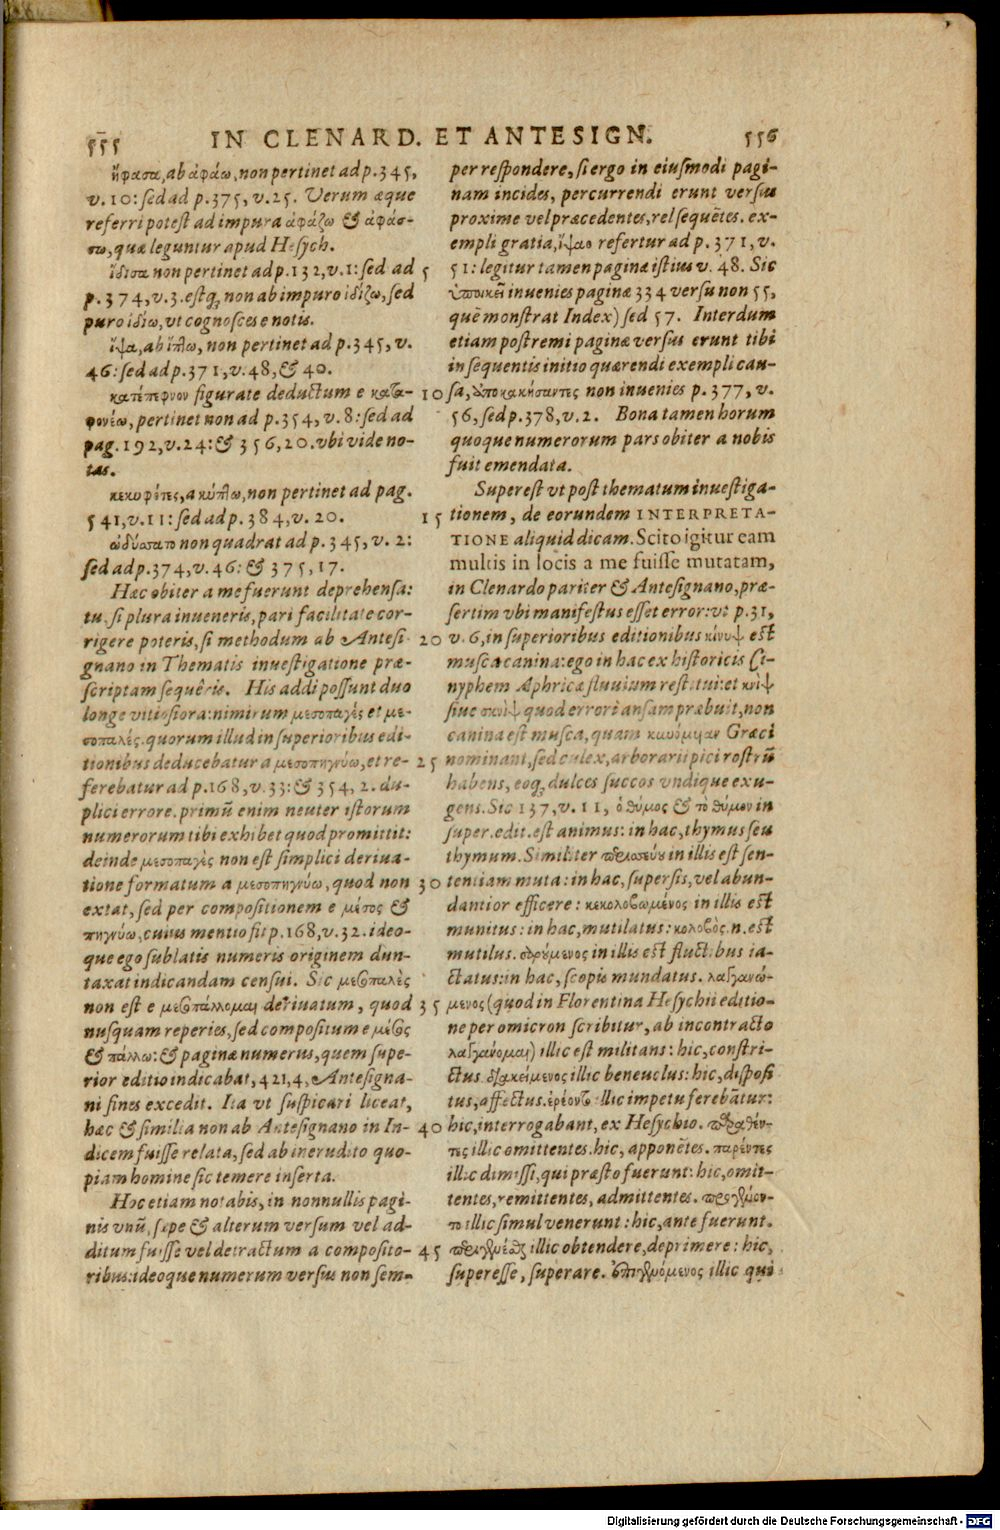 555 IN CLENARD. ET ANTESIGN. 556
ἤφασα, ab ἀφάω, non pertinet ad p. 345,
v. 10: sed ad p. 375, v. 25. Verum æque
referri potest ad impura ἀφάζω & ἀφάσ-
σω, quæ leguntur apud Hesych.
ἴδισα non pertinet ad p. 132, v. 1: sed ad
p. 374, v. 3. estq; non ab impuro ἰδίζω, sed
puro ἰδίω, vt cognosces e notis.
ἴψα, ab ἵπτω, non pertinet ad p. 345, v.
46: sed ad p. 371, v. 48, & 40.
κατέπεφνον figurate deductum e κατα-
φονέω, pertinet non ad p. 354, v. 8: sed ad
pag. 192, v. 24: & 356, 20. vbi vide no-
tas.
κεκυφότες, a κύπτω, non pertinet ad pag.
541, v. 11: sed ad p. 384, v. 20.
ὠδύσατο non quadrat ad p. 345, v. 2:
sed ad p. 374, v. 46: & 375, 17.
Hæc obiter a me fuerunt deprehensa:
tu, si plura inueneris, pari facilitate cor-
rigere poteris, si methodum ab Antesi-
gnano in Thematis inuestigatione præ-
scriptam sequêris. His addi possunt duo
longe vitiosiora: nimirum μεσοπαγὲς et με-
σοπαλές. quorum illud in superioribus edi-
tionibus deducebatur a μεσοπηγνύω, et re-
ferebatur ad p. 168, v. 33: & 354, 2. du-
plici errore. primũ enim neuter istorum
numerorum tibi exhibet quod promittit:
deinde μεσοπαγὲς non est simplici deriua-
tione formatum a μεσοπηγνύω, quod non
extat, sed per compositionem e μέσος &
πηγνύω, cuius mentio fit p. 168, v. 32. ideo-
que ego sublatis numeris originem dun-
taxat indicandam censui. Sic μεσοπαλὲς
non est e μεσοπάλλομαι deriuatum, quod
nusquam reperies, sed compositum e μέσος
& πάλλω: & paginæ numerus, quem supe-
rior editio indicabat, 421, 4, Antesigna-
ni fines excedit. Ita vt suspicari liceat,
hæc & similia non ab Antesignano in In-
dicem fuisse relata, sed ab inerudito quo-
piam homine sic temere inserta.
Hoc etiam notabis, in nonnullis pagi-
nis vnũ, sæpe & alterum versum vel ad-
ditum fuisse vel detractum a composito-
ribus: ideoque numerum versus non sem-
5
10
15
20
25
30
35
40
45
per respondere, si ergo in eiusmodi pagi-
nam incides, percurrendi erunt versus
proxime vel præcedentes, vel sequẽtes. ex-
empli gratia, ἴψαο refertur ad p. 371, v.
51: legitur tamen paginæ istius v. 48. Sic
ὑποικεῖ inuenies paginæ 334 versu non 55,
quẽ monstrat Index) sed 57. Interdum
etiam postremi paginæ versus erunt tibi
in sequentis initio quærendi exempli cau-
sa, ἀποκακήσαντες non inuenies p. 377, v.
56, sed p. 378, v. 2. Bona tamen horum
quoque numerorum pars obiter a nobis
fuit emendata.
Superest vt post thematum inuestiga-
tionem, de eorundem INTERPRETA-
TIONE aliquid dicam. Scito igitur eam
multis in locis a me fuisse mutatam,
in Clenardo pariter & Antesignano, præ-
sertim vbi manifestus esset error: vt p. 31,
v. 6, in superioribus editionibus κίνυψ est
musca canina: ego in hac ex historicis Ci-
nyphem Aphricæ fluuium restitui: et κνὶψ
siue σκνὶψ quod errori ansam præbuit, non
canina est musca, quam κυνόμυιαν Græci
nominant, sed culex, arborarii pici rostrũ
habens, eoq; dulces succos vndique exu-
gens. Sic 137, v. 11, ὁ θύμος & τὸ θύμον in
super. edit. est animus: in hac, thymus seu
thymum. Similiter περισσεύω in illis est sen-
tentiam muta: in hac, supersis, vel abun-
dantior efficere: κεκολοβωμένος in illis est
munitus: in hac, mutilatus: κολοβὸς. n. est
mutilus. σαρούμενος in illis est fluctibus ia-
ctatus: in hac, scopis mundatus. λαγγανώ-
μενος (quod in Florentina Hesychii editio-
ne per omicron scribitur, ab incontracto
λαγγανόμαι) illic est militans: hic, constri-
ctus. διακείμενος illic beneuolus: hic, disposi-
tus, affectus. ἐρέοντο illic impetu ferebãtur:
hic, interrogabant, ex Hesychio. παραθέν-
τες illic omittentes. hic, apponẽtes. παρέντες
illic dimissi, qui præsto fuerunt: hic, omit-
tentes, remittentes, admittentes. προεγένον-
το illic simul venerunt: hic, ante fuerunt.
περιγενέσθαι illic obtendere, deprimere: hic,
superesse, superare. ἐπιγενόμενος illic qui
Digitalisierung gefördert durch die Deutsche Forschungsgemeinschaft - DFG